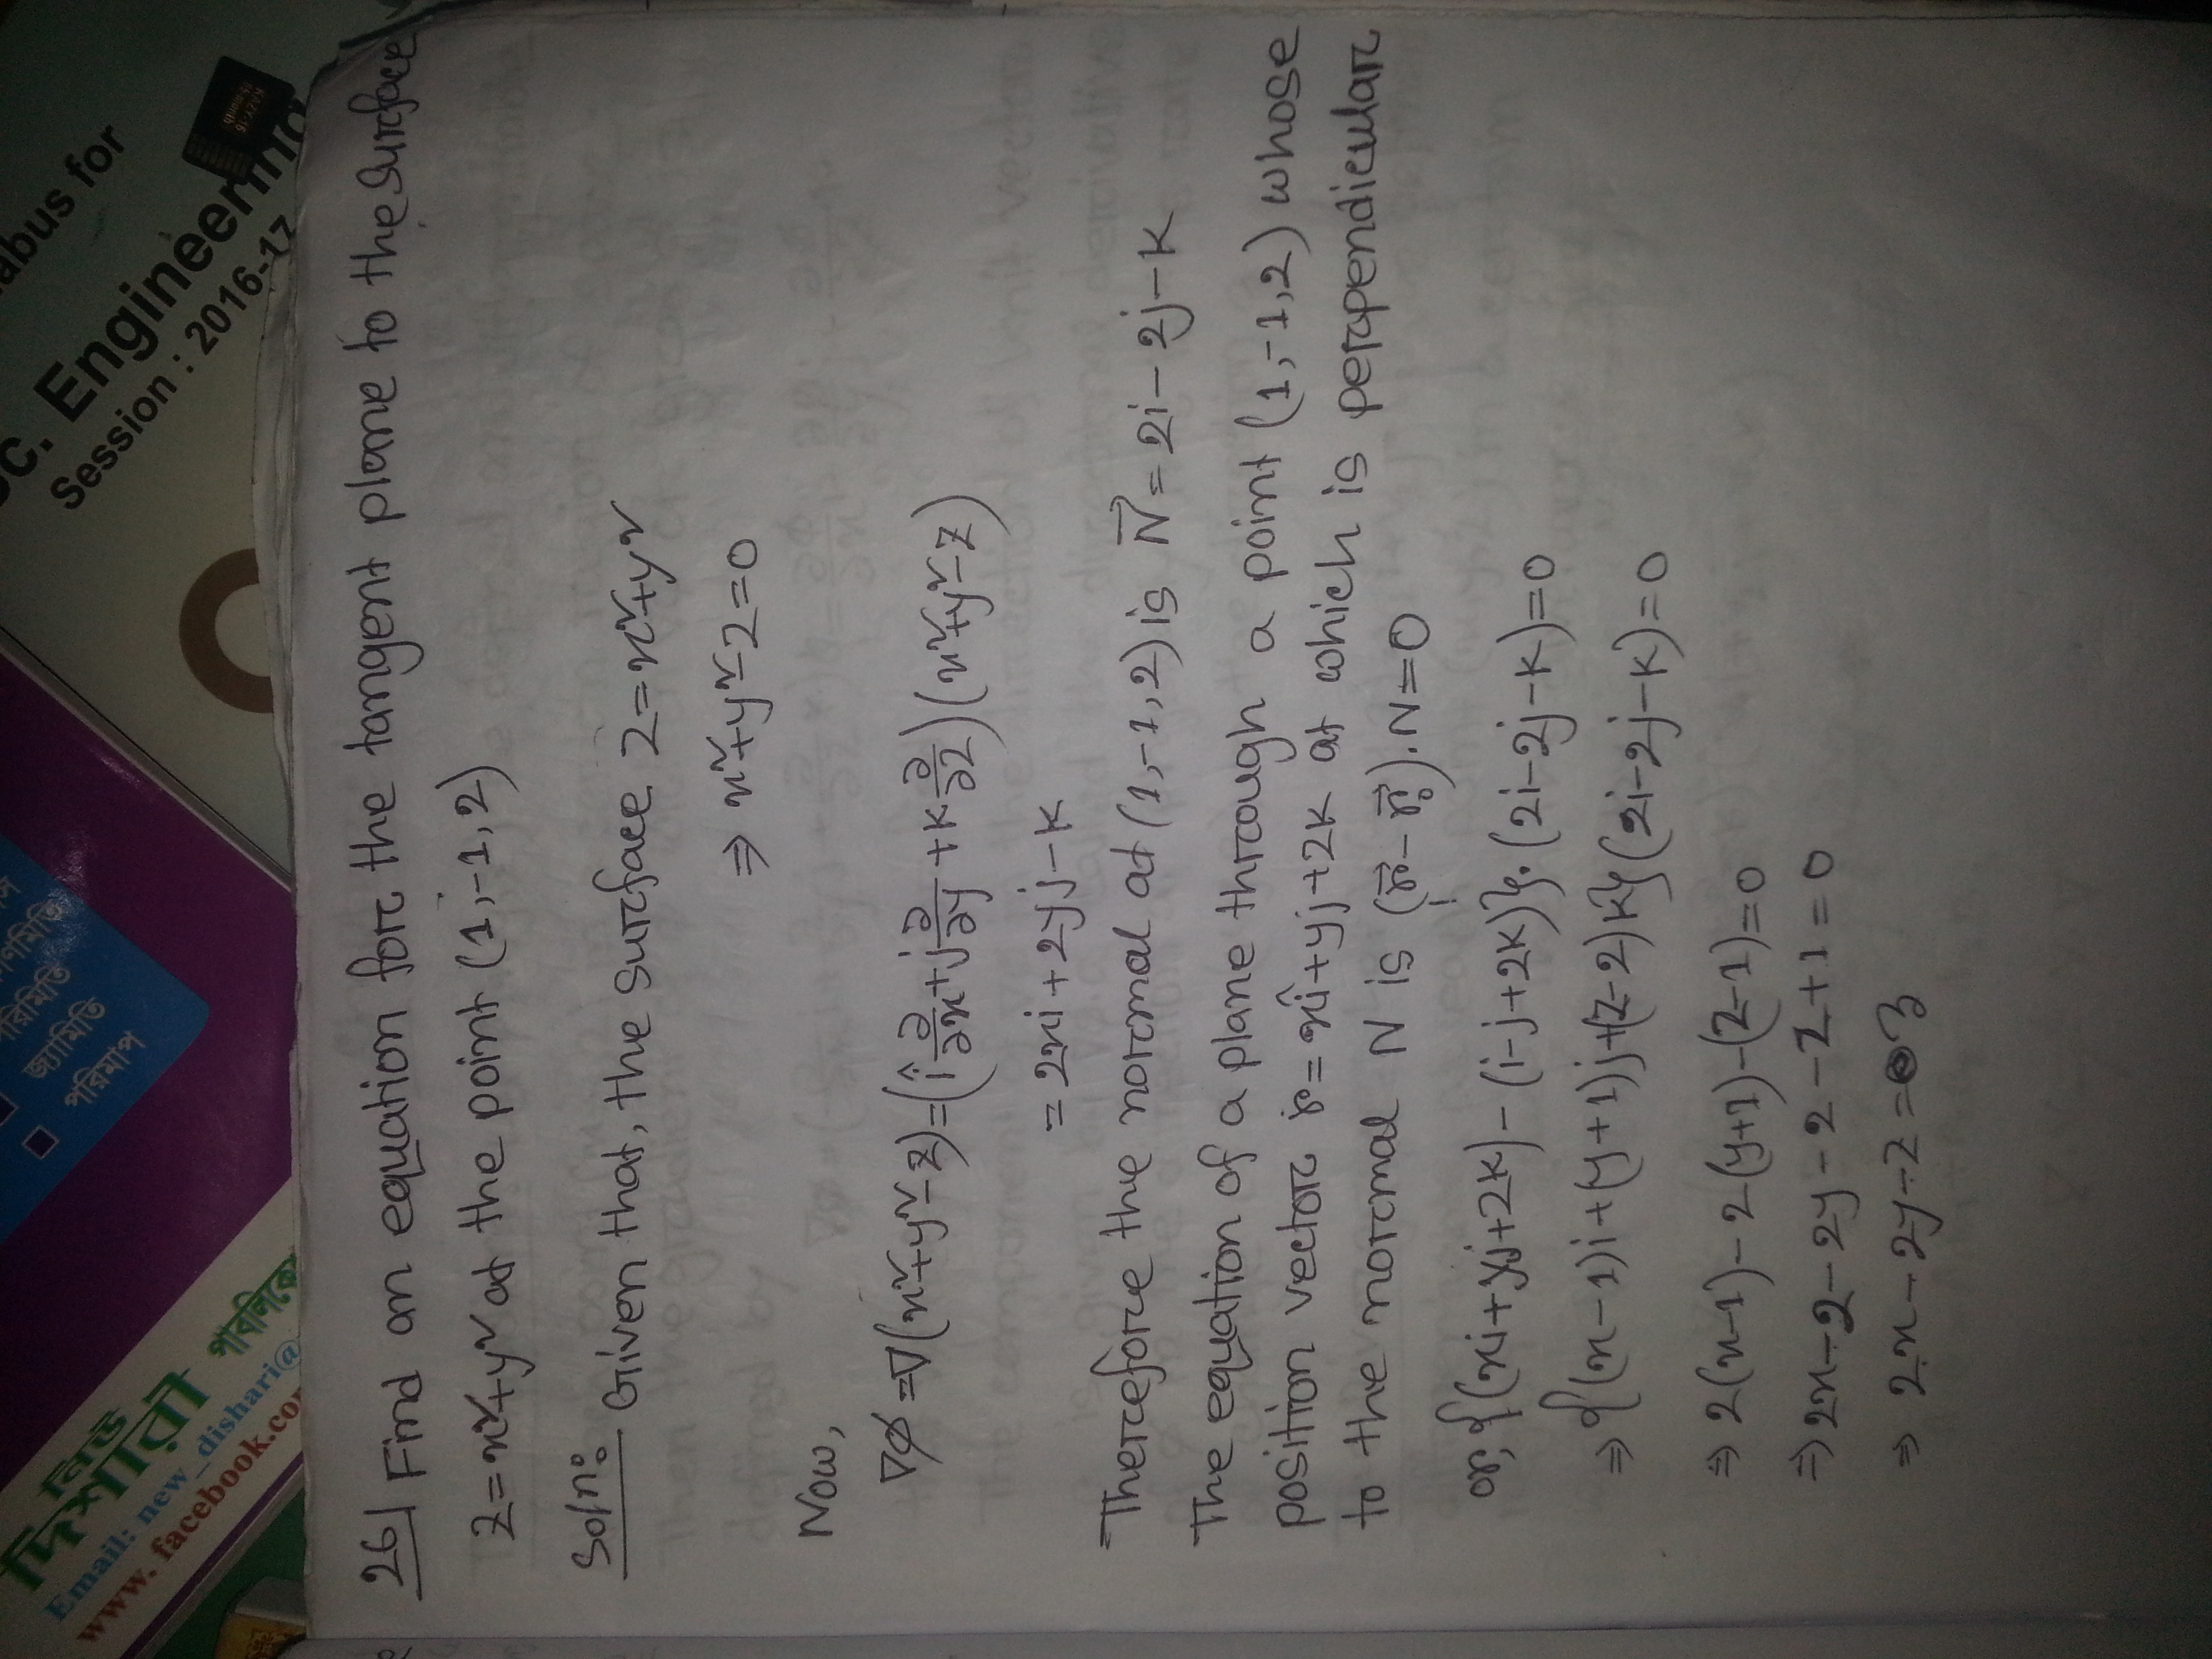 নিউ
দিশারী
পাবলিকে
Email: new_dishari@
www. facebook.co
পরিমিতি
জ্যামিতি
পরিমাপ
abus for
c. Engineering
Session : 2016-17
26| Find an equation for the tangent plane to the surface
z=x²+y² at the point (1,-1,2)
Soln:
Given that, the surface z=x²+y²
⇒ x²+y²-z=0
Now,
∇φ=∇(x²+y²-z)=(î ∂/∂x+j ∂/∂y+k ∂/∂z)(x²+y²-z)
= 2xi+2yj-k
Therefore the normal at (1,-1,2) is N⃗=2i-2j-k
The equation of a plane through a point (1,-1,2) whose
position vector r=xî+yj+zk at which is perpendicular
to the normal N is (r⃗-r⃗₀).N=0
or, {(xi+yj+zk)-(i-j+2k)}.(2i-2j-k)=0
⇒ {(x-1)i+(y+1)j+(z-2)k}(2i-2j-k)=0
⇒ 2(x-1)-2(y+1)-(z-1)=0
⇒ 2x-2-2y-2-z+1=0
⇒ 2x-2y-z=3